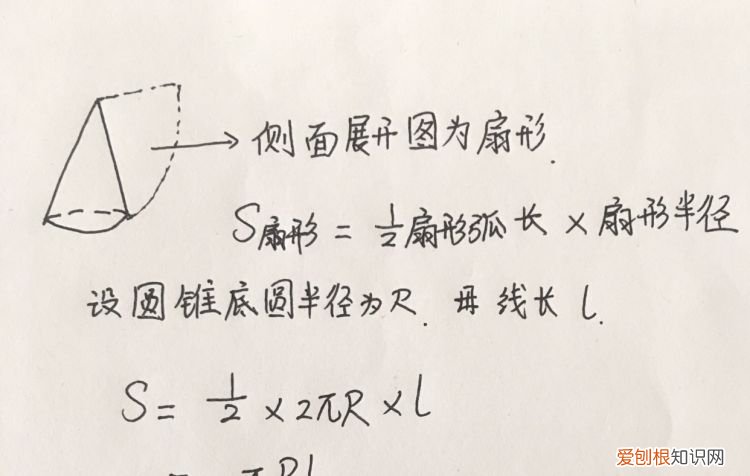 侧面展开图为扇形.
S扇形 = 1/2扇形弧长 × 扇形半径
设圆锥底圆半径为R. 母线长 l.
S = 1/2 × 2πR × l
= πRl
爱刨根知识网